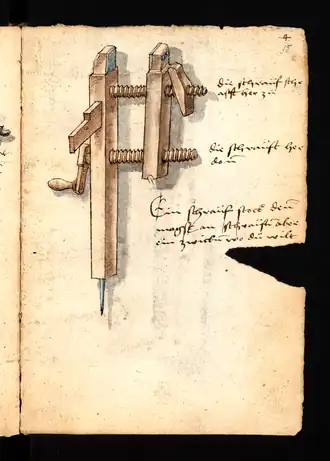 4
die schrauf schr
afft her zu
die schrauft her
dan
Ein schrauf stock den
magst an schrauffn aber
ein zwickn wo du wilt